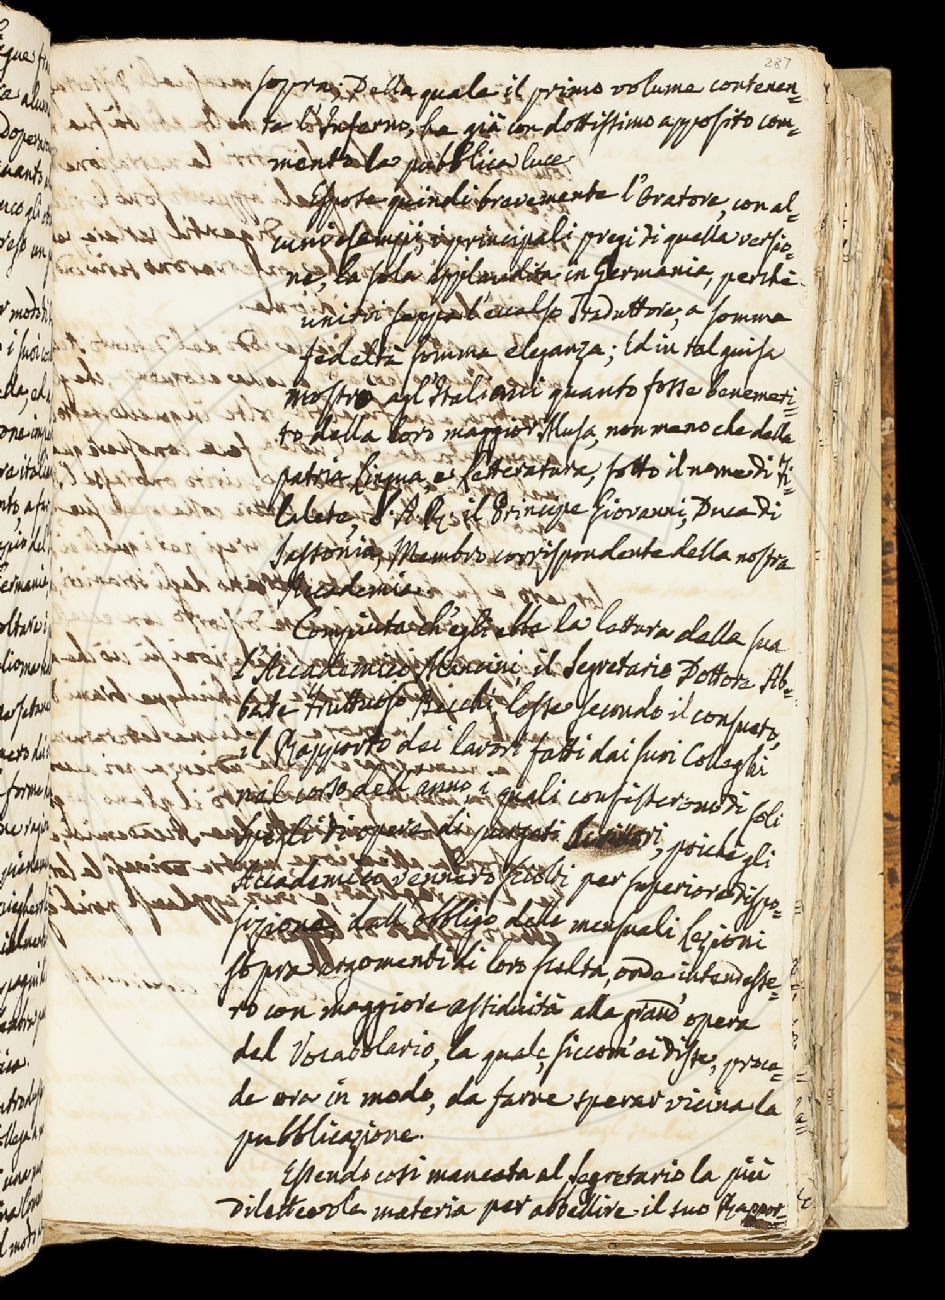 287
sopra; Della quale il primo volume contenen=
te l'Inferno, ha già con dottissimo apposito com=
mento la pubblica luce.
Espose quindi brevemente l'Oratore, con al=
cuni esempj, i principali pregi di quella versio=
ne, la sola applaudita in Germania, perchè
unirvi seppe l'eccelso Traduttore, a somma
fedeltà somma eleganza; Ed in tal guisa
mostrò agl'Italiani quanto fosse benemeri=
to della loro maggior Musa, non meno che della
patria Lingua, e Letteratura, sotto il nome di Fi=
lalete, S. A. R. il Principe Giovanni, Duca di
Sassonia, Membro corrispondente della nostra
Accademia.
Compiuta ch'egli ebbe la lettura della sua
l'Accademico Mancini il Segretario Dottore Ab=
bate Fruttuoso Becchi, lesse secondo il consueto,
il Rapporto dei lavori fatti dai suoi Colleghi
nel corso dell'anno i quali consisterono di soli
Spogli di opere di purgati Scrittori, poichè gli
Accademici vennero sciolti per superiore dispo=
sizione dall'obbligo delle mensuali Lezioni
sopra argomenti di loro scelta, onde intendesse=
ro con maggiore assiduità alla grand'opera
del Vocabolario, la quale, siccom'ei disse, proce=
de ora in modo, da farne sperar vicina la
pubblicazione.
Essendo così mancata al Segretario la più
dilettevole materia per abbellire il suo Rappor